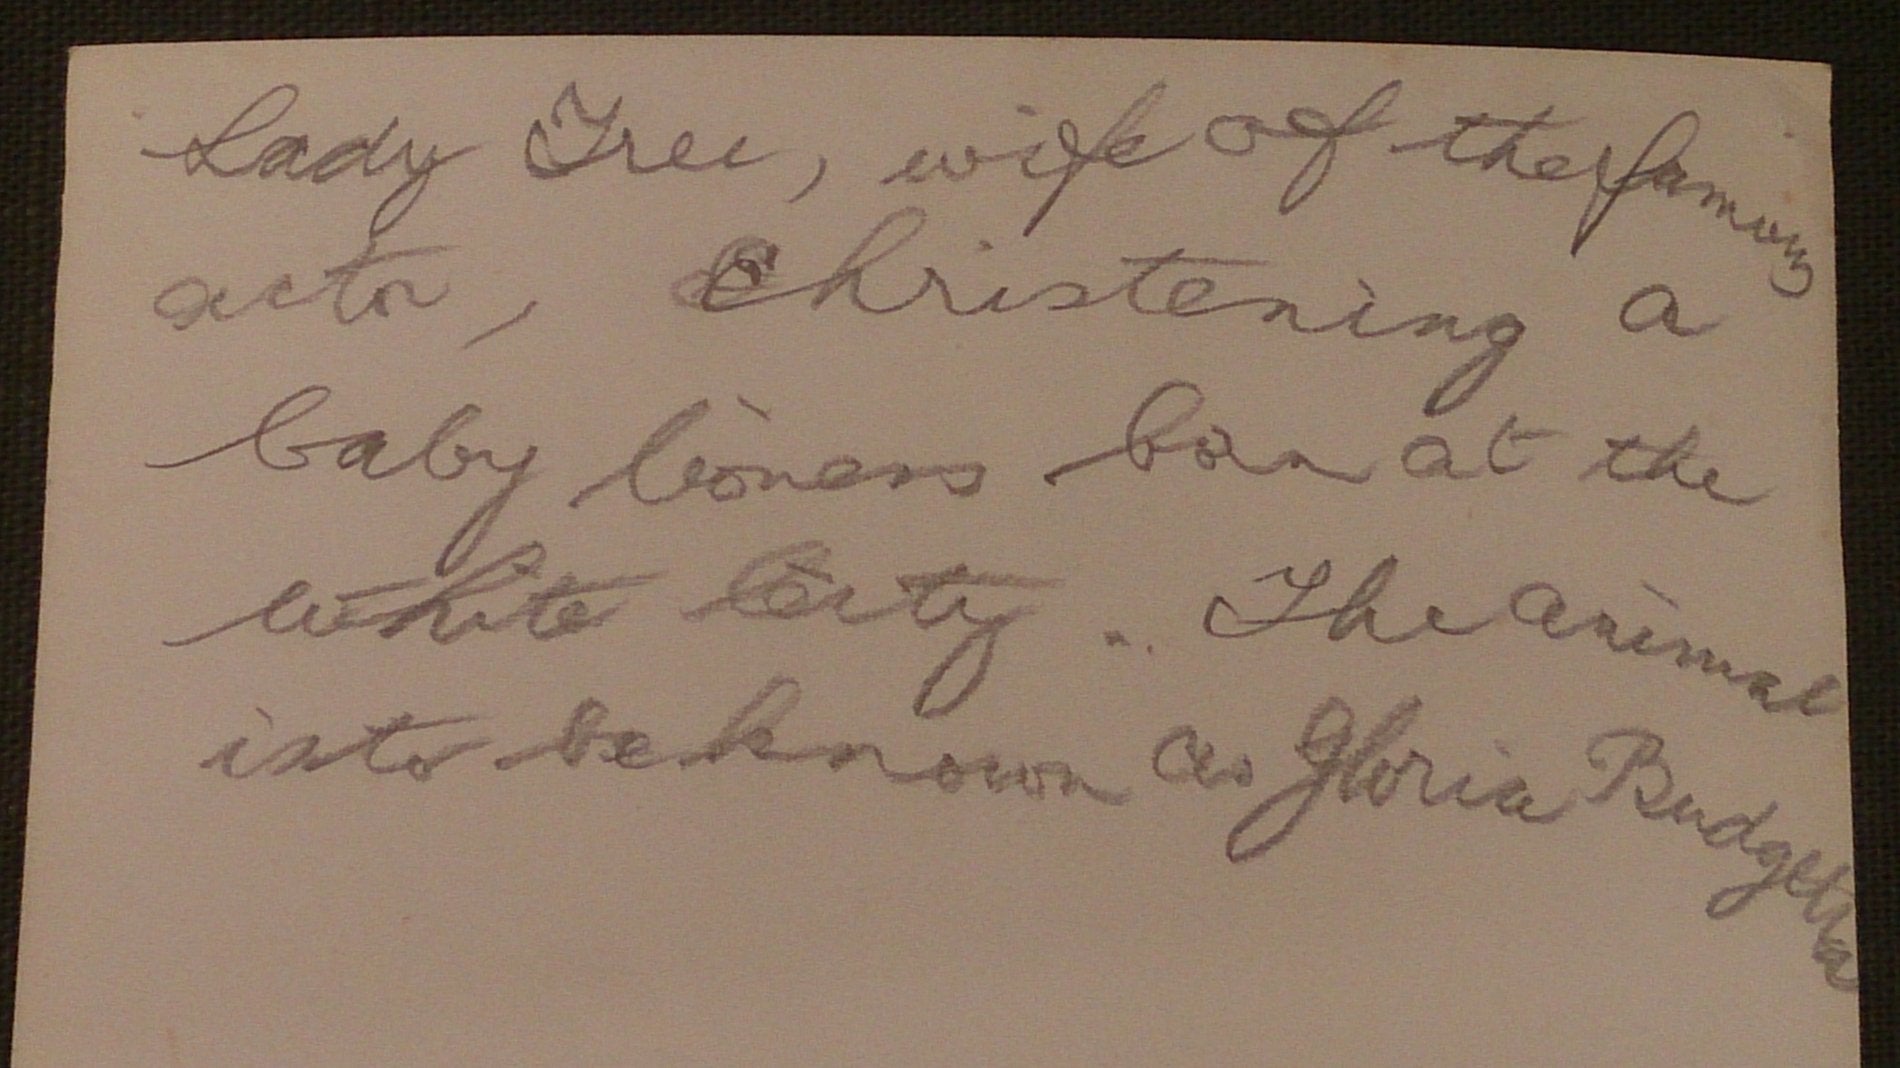 Lady Tree, wife of the famous
actor, Christening a
baby lioness born at the
White City. The animal
is to be known as Gloria Budgetta